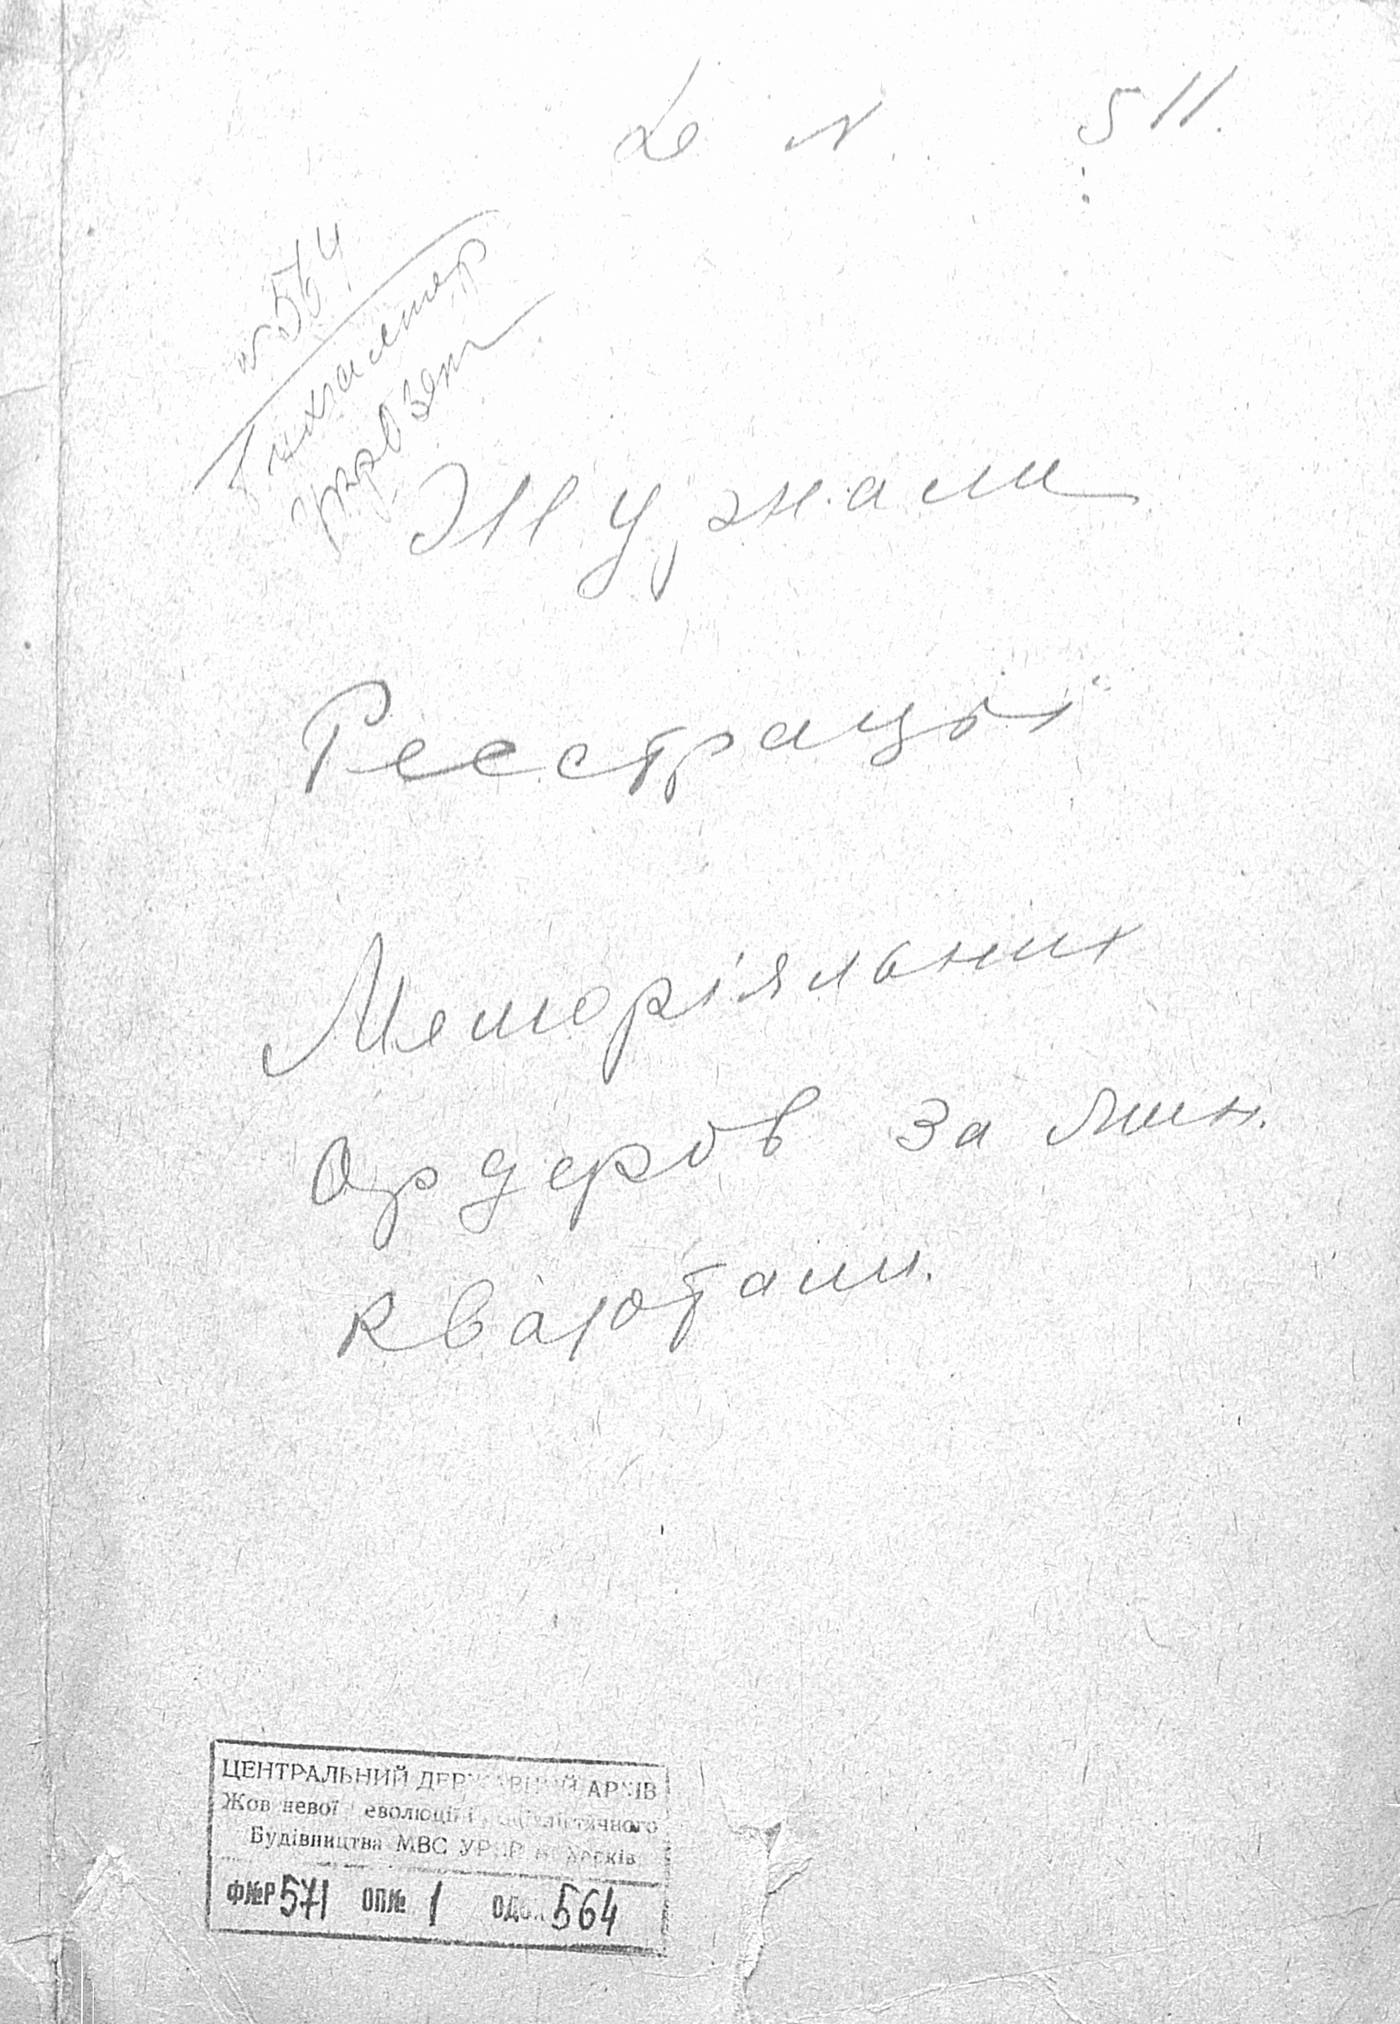 Д N 511.
N 564
Бухгалтер
Журнали
Реєстрації
Меморіяльних
Ордерів за лик.
квалотами.
ЦЕНТРАЛЬНИЙ ДЕРЖАВНИЙ АРХІВ
Жовтневої революції і соціалістичного
Будівництва МВС УРСР м. Харків
Ф№Р 571 ОП№ 1 ОД.ЗБ. 564